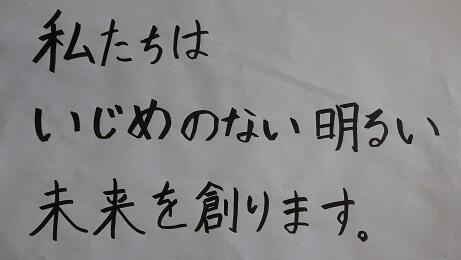 私たちは
いじめのない明るい
未来を創ります。